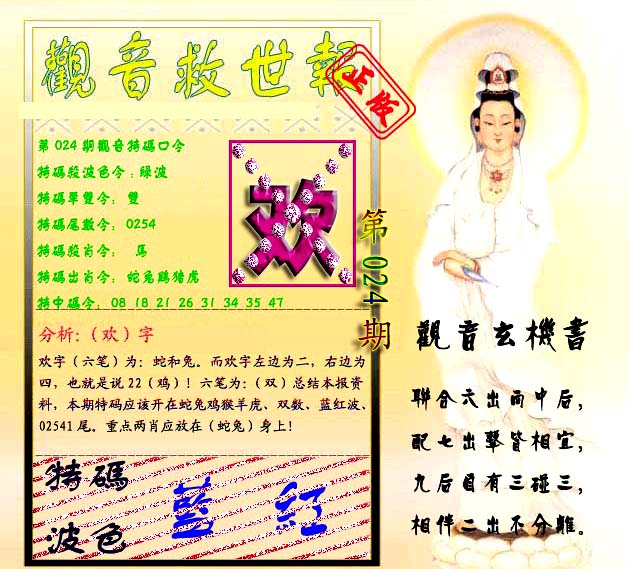 觀音救世報
正版
第024期觀音特碼口令
特碼殺波色令:綠波
特碼單雙令: 雙
特碼尾數令: 0254
特碼殺肖令: 馬
特碼出肖令: 蛇兔鷄猪虎
特中碼令: 08 18 21 26 31 34 35 47
欢
第024期
分析:(欢)字
欢字(六笔)为:蛇和兔。而欢字左边为二,右边为
四,也就是说22(鸡)!六笔为:(双)总结本报资
料,本期特码应该开在蛇兔鸡猴羊虎、双数、蓝红波、
02541尾。重点两肖应放在(蛇兔)身上!
特碼
波色
藍 紅
觀音玄機書
聯合六出而中后,
配七出擊皆相宜,
九后目有三碰三,
相伴二出不分離。